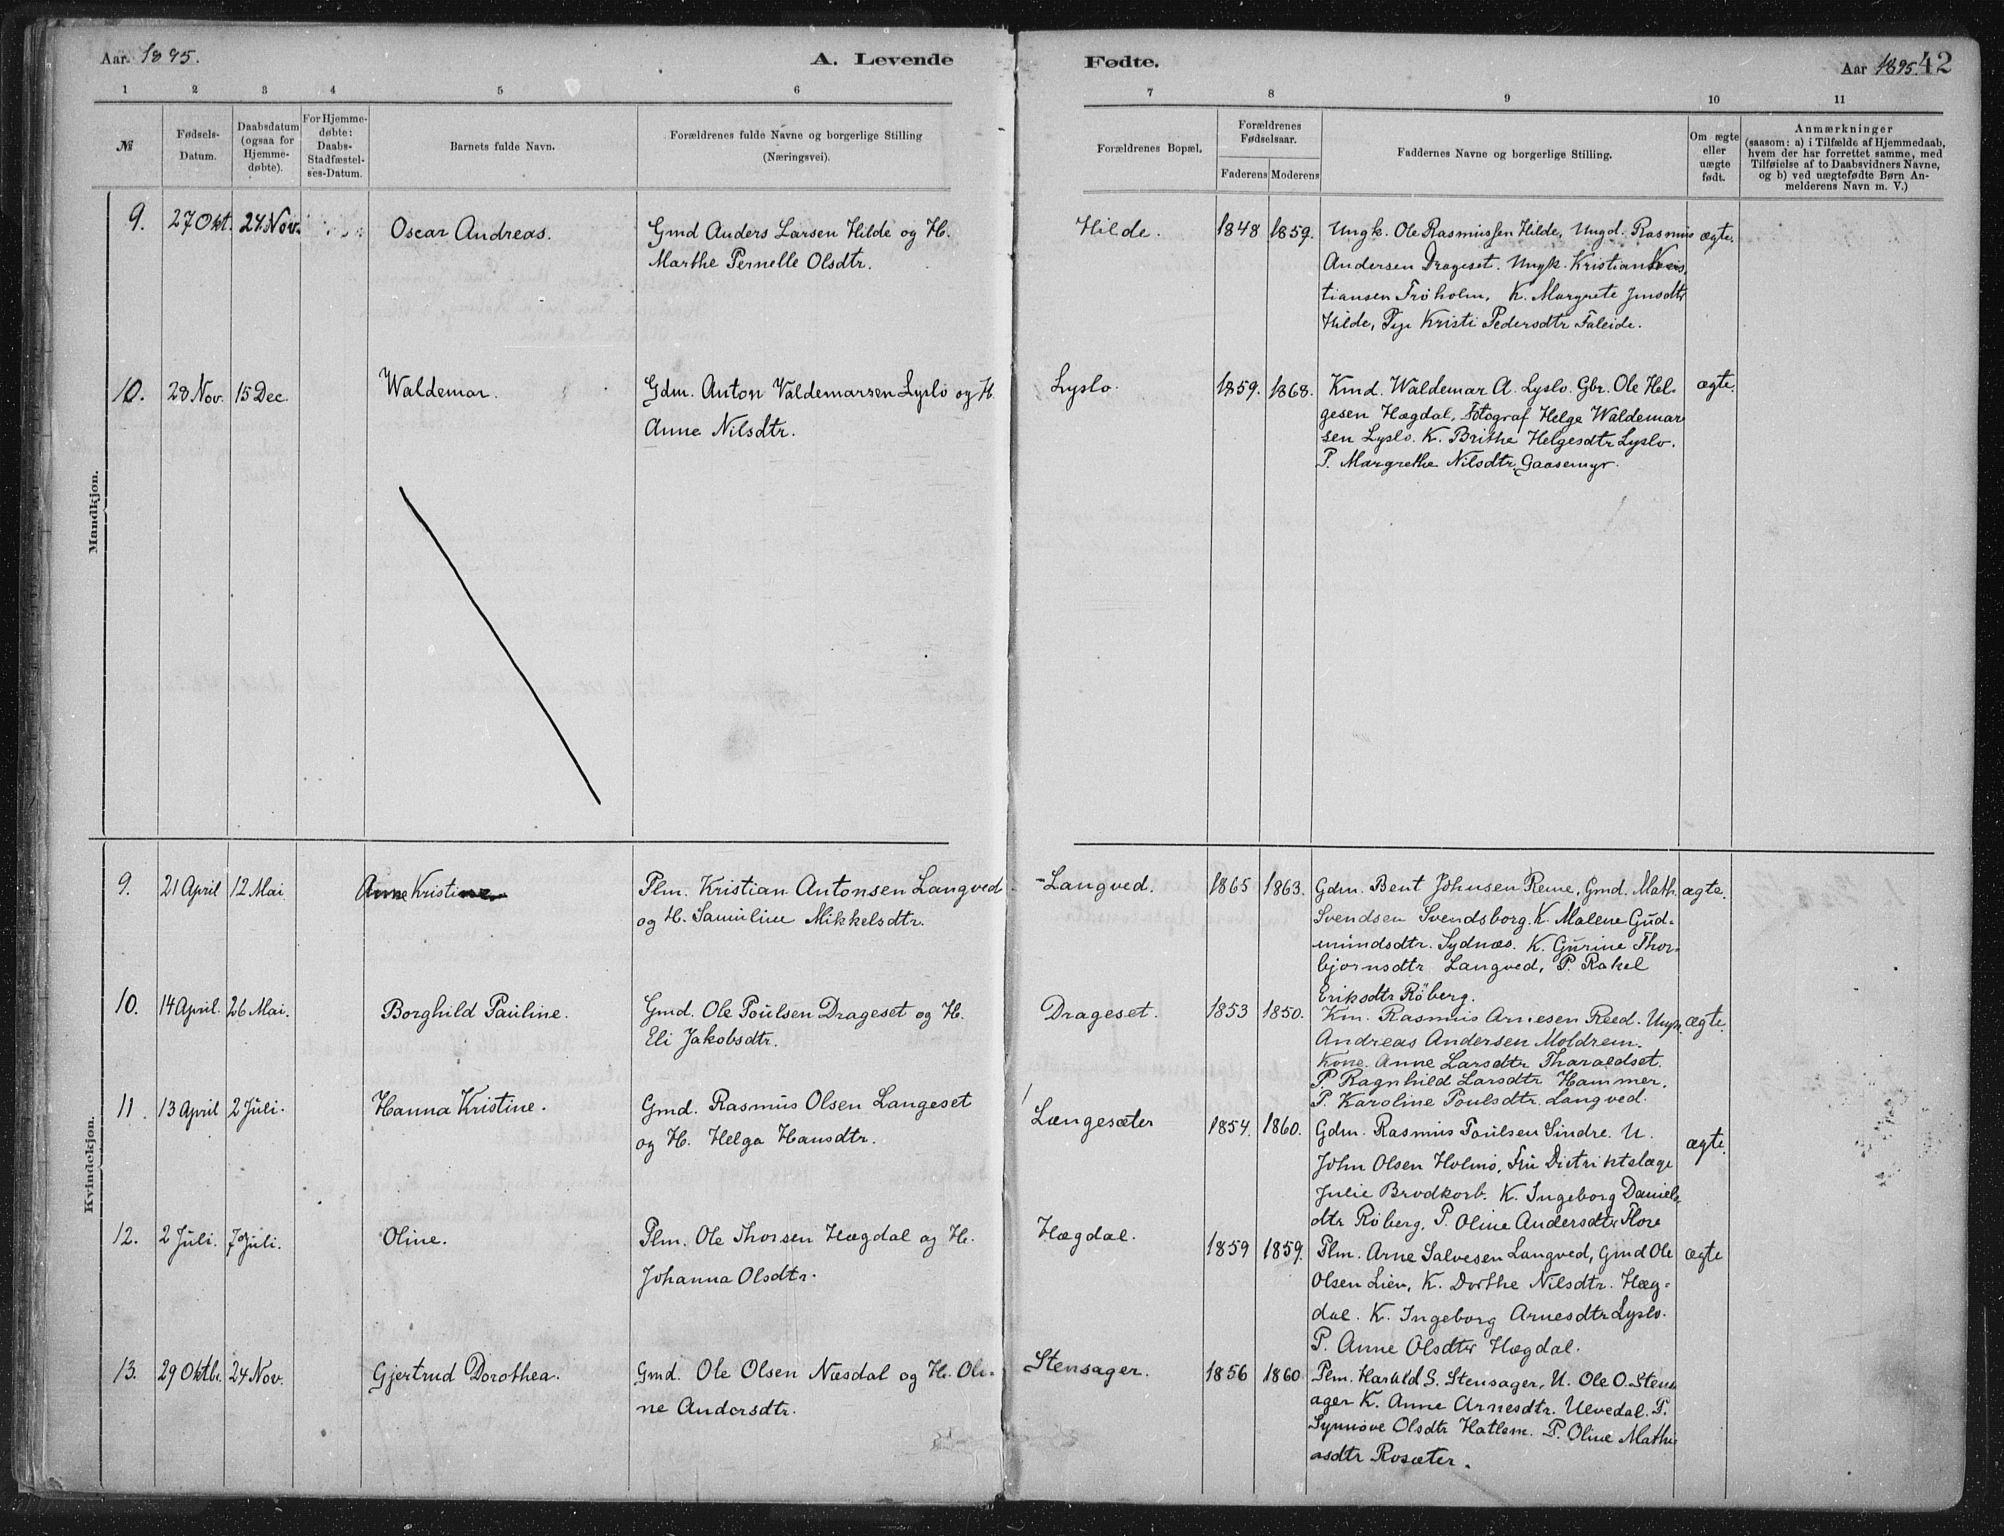 Aar. 1895.
A. Levende
Fødte.
Aar 1895.
42
1 2 3 4 5 6 7 8 9 10 11
№
Fødsels-
Datum.
Daabsdatum
(ogsaa for
Hjemme-
døbte).
For Hjemme-
døbte:
Daabs-
Stadfæstel-
ses-Datum.
Barnets fulde Navn.
Forældrenes fulde Navne og borgerlige Stilling
(Næringsvei).
Forældrenes Bopæl.
Forældrenes
Fødselsaar.
Faderens Moderens
Faddernes Navne og borgerlige Stilling.
Om ægte
eller
uægte
født.
Anmærkninger
(saasom: a) i Tilfælde af Hjemmedaab,
hvem der har forrettet samme, med
Tilføielse af to Daabsvidners Navne,
og b) ved uægtefødte Børn An-
melderens Navn m. V.)
Mandkjøn.
9. 27 Okt. 24 Nov. Oscar Andreas.
Gmd Anders Larsen Hilde og H.
Marthe Pernelle Olsdtr.
Hilde. 1848 1859.
Ungk. Ole Rasmussen Hilde, Ungd. Rasmus
Andersen Drageset. Ungk. Kristian Kris
tiansen Frøholm, K. Margrete Jensdtr
Hilde, Pige Kristi Pedersdtr Faleide.
ægte.
10. 28 Nov. 15 Dec. Waldemar.
Gdm. Anton Valdemarsen Lyslo og H.
Anne Nilsdtr.
Lyslo. 1859. 1868.
Kmd. Waldemar A. Lyslo. Gbr. Ole Hel-
gesen Hægdal, Fotograf Helge Waldemar
sen Lyslo. K. Brithe Helgesdtr Lyslo.
P. Margrethe Nilsdtr. Gaasemyr.
ægte.
Kvindekjøn.
9. 21 April 12 Mai Anne Kristine
Plm. Kristian Antonsen Langved
og H. Samiline Mikkelsdtr.
Langved. 1865 1863.
Gdm. Bent Johnsen Reme, Gmd. Math.
Svendsen Svendsborg. K. Malene Gud-
mundsdtr. Sydnæs. K. Gurine Thor-
bjørnsdtr Langved, P. Rakel
Eriksdtr Røberg.
ægte.
10. 14 April. 26 Mai. Borghild Pauline.
Gmd. Ole Poulsen Drageset og H.
Eli Jakobsdtr.
Drageset. 1853 1850.
Km. Rasmus Arnesen Reed. Ungk.
Andreas Andersen Moldrem.
Kone. Anne Larsdtr Tharaldset.
P. Ragnhild Larsdtr Hammer.
P. Karoline Poulsdtr. Langved.
ægte.
11. 13 April 2 Juli. Hanna Kristine.
Gmd. Rasmus Olsen Langeset
og H. Helga Hansdtr.
Længesæter 1854. 1860.
Gdm. Rasmus Poulsen Sindre. U.
John Olsen Holmø, Fru Distriktslæge
Julie Brodkorb. K. Ingeborg Daniels
dtr Røberg, P. Oline Andersdtr Flore
ægte.
12. 2 Juli. 7 Juli. Oline.
Plm. Ole Thorsen Hægdal og H.
Johanna Olsdtr.
Hægdal. 1859 1859.
Plm. Arne Salvesen Langved, Gmd Ole
Olsen Lien, K. Dorthe Nilsdtr. Hæg-
dal. K. Ingeborg Arnesdtr Lyslo.
P. Anne Olsdtr Hægdal.
ægte
13. 29 Oktbr. 24 Nov. Gjertrud Dorothea.
Gmd. Ole Olsen Næsdal og H. Oli-
ne Andersdtr.
Stensager. 1856 1860
Plm. Harald S. Stensager, U. Ole O. Stens
ager K. Anne Arnesdtr. Uevedal. P.
Synnøve Olsdtr Hatlem. P. Oline Mathi
asdtr Rosæter.